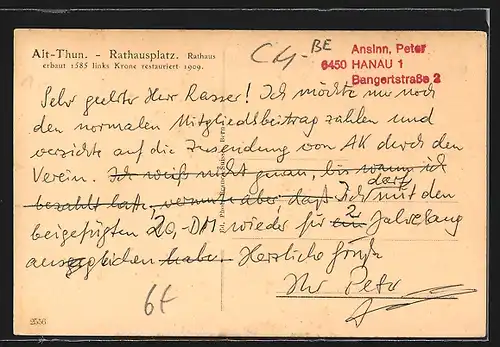 Alt-Thun. - Rathausplatz. Rathaus
erbaut 1585 links Krone restauriert 1909.
CH-BE
Ansinn, Peter
6450 HANAU 1
Bangertstraße 2
Sehr geehrter Herr Rasser! Ich möchte nur noch
den normalen Mitgliedsbeitrag zahlen und
verzichte auf die Zusendung von AK durch den
Verein. Ich weiß nicht genau, bis wann ich
bezahlt habe, vermute aber, daß ich darf mit den
beigefügten 20,-DM wieder für ein 2 Jahre lang
ausgeglichen habe. Herzliche Grüße
Ihr Peter
6f
2556